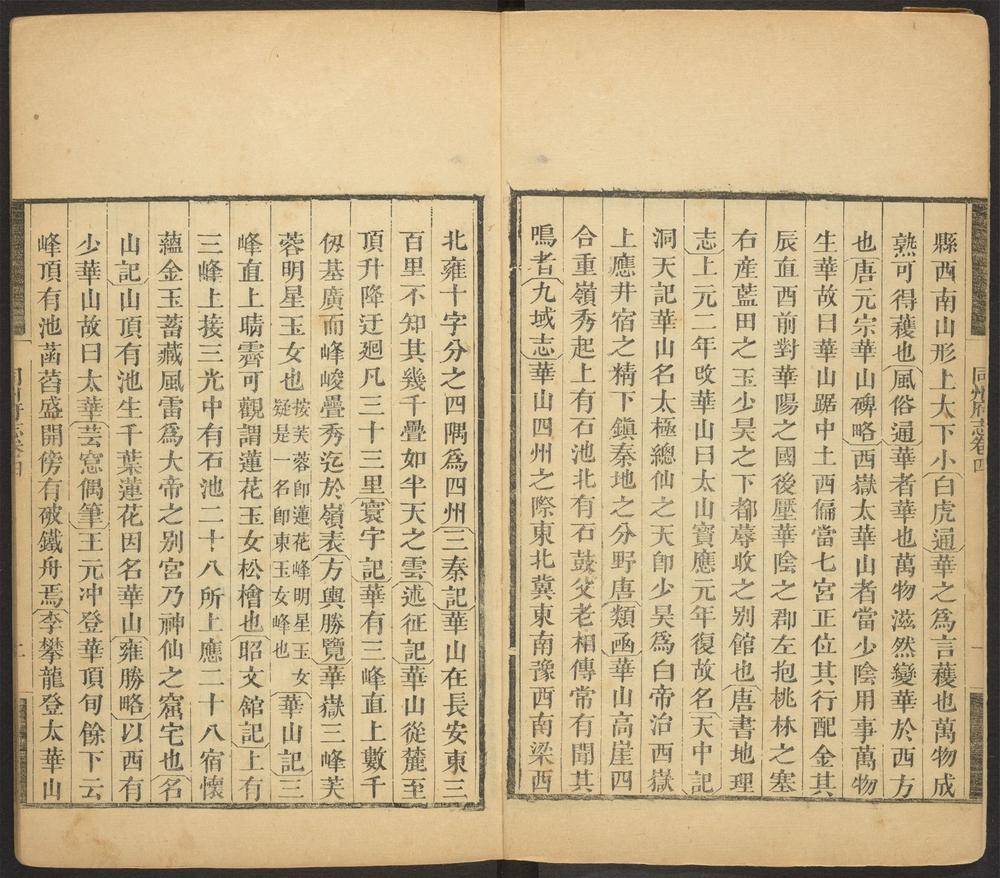 同州府志卷四
一
縣西南山形上大下小〔白虎通〕華之爲言穫也萬物成
熟可得穫也〔風俗通〕華者華也萬物滋然變華於西方
也〔唐元宗華山碑略〕西嶽太華山者當少陰用事萬物
生華故曰華山踞中土西偏當七宮正位其行配金其
辰直酉前對華陽之國後壓華陰之郡左抱桃林之塞
右產藍田之玉少昊之下都蓐收之别館也〔唐書地理
志〕上元二年改華山曰太山寶應元年復故名〔天中記〕
洞天記華山名太極總仙之天卽少昊爲白帝治西嶽
上應井宿之精下鎭秦地之分野〔唐類函〕華山高崖四
合重嶺秀起上有石池北有石鼓父老相傳常有聞其
鳴者〔九域志〕華山四州之際東北冀東南豫西南梁西
北雍十字分之四隅爲四州〔三秦記〕華山在長安東三
百里不知其幾千疊如半天之雲〔述征記〕華山從麓至
頂升降迂廻凡三十三里〔寰宇記〕華有三峰直上數千
仭基廣而峰峻疊秀迄於嶺表〔方輿勝覽〕華嶽三峰芙
蓉明星玉女也按芙蓉卽蓮花峰明星玉女疑是一名卽東玉女峰也〔華山記〕三
峰直上晴霽可觀謂蓮花玉女松檜也〔昭文舘記〕上有
三峰上接三光中有石池二十八所上應二十八宿懷
蘊金玉蓄藏風雷爲大帝之别宮乃神仙之窟宅也〔名
山記〕山頂有池生千葉蓮花因名華山〔雍勝略〕以西有
少華山故曰太華〔芸窓偶筆〕王元冲登華頂旬餘下云
峰頂有池菡萏盛開傍有破鐵舟焉〔李攀龍登太華山